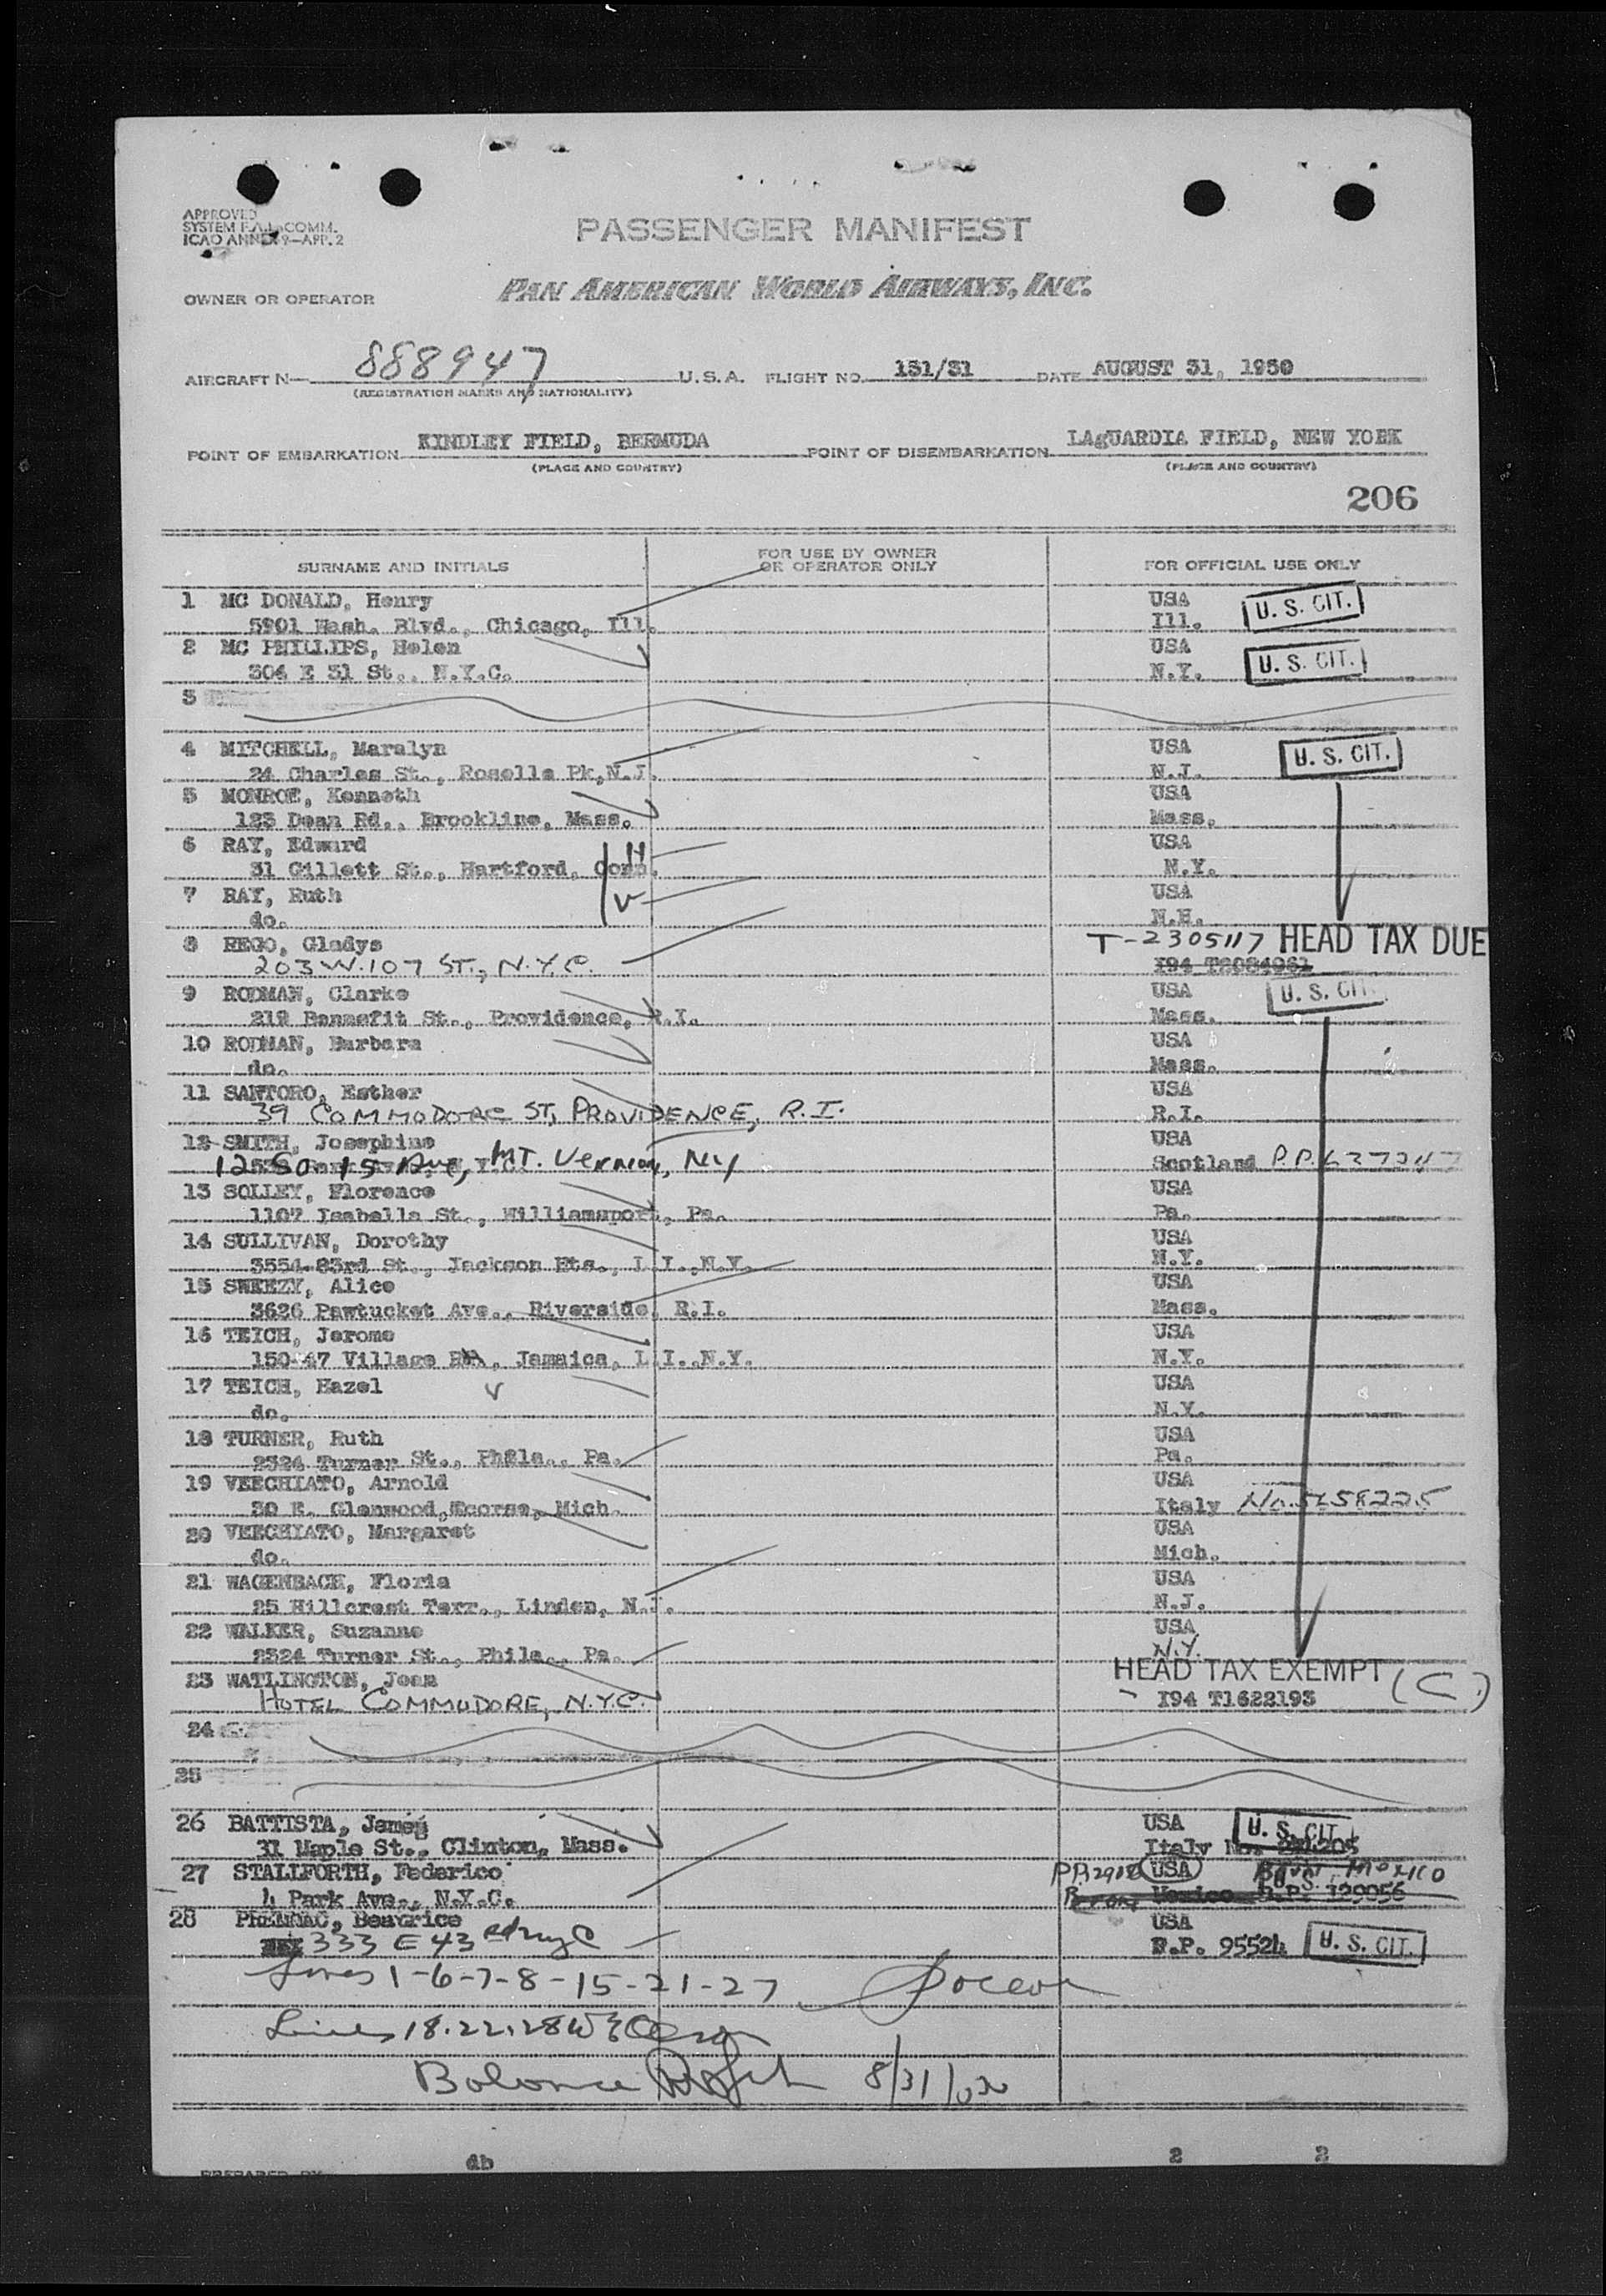 APPROVED
SYSTEM F.A.L. COMM.
ICAO ANNEX 9—APP. 2
PASSENGER MANIFEST
OWNER OR OPERATOR
PAN AMERICAN WORLD AIRWAYS, INC.
AIRCRAFT N— 888947 U.S.A. FLIGHT NO. 131/31 DATE AUGUST 31, 1950
(REGISTRATION MARKS AND NATIONALITY)
POINT OF EMBARKATION KINDLEY FIELD, BERMUDA POINT OF DISEMBARKATION LAgUARDIA FIELD, NEW YORK
(PLACE AND COUNTRY) (PLACE AND COUNTRY)
206
SURNAME AND INITIALS FOR USE BY OWNER OR OPERATOR ONLY FOR OFFICIAL USE ONLY
1 MC DONALD, Henry USA U. S. CIT.
5901 Wash. Blvd., Chicago, Ill. Ill.
2 MC PHILLIPS, Helen USA U. S. CIT.
304 E 31 St., N.Y.C. N.Y.
3
4 MITCHELL, Maralyn USA U. S. CIT.
24 Charles St., Roselle Pk,N.J. N.J.
5 MONROE, Kenneth USA
123 Dean Rd., Brookline, Mass. Mass.
6 RAY, Edward USA
31 Gillett St., Hartford, Conn. N.Y.
7 RAY, Ruth USA
do. N.H.
8 REGO, Gladys T-2305117 HEAD TAX DUE
203 W. 107 ST., N.Y.C. I94 T2084961
9 RODMAN, Clarke USA U. S. CIT.
219 Bennefit St., Providence, R.I. Mass.
10 RODMAN, Barbara USA
do. Mass.
11 SANTORO, Esther USA
39 COMMODORE ST, PROVIDENCE, R.I. R.I.
12 SMITH, Josephine USA
12 So 15 Ave, MT. Vernon, NY Scotland P.P.
13 SOLLEY, Florence USA
1107 Isabella St., Williamsport, Pa. Pa.
14 SULLIVAN, Dorothy USA
3554-83rd St., Jackson Hts., L.I.,N.Y. N.Y.
15 SWEEZY, Alice USA
3626 Pawtucket Ave., Riverside, R.I. Mass.
16 TEICH, Jerome USA
150-47 Village Rd, Jamaica, L.I.,N.Y. N.Y.
17 TEICH, Hazel USA
do. N.Y.
18 TURNER, Ruth USA
2324 Turner St., Phila., Pa. Pa.
19 VEECHIATO, Arnold USA
30 E. Glenwood,Ecorse, Mich. Italy No.
20 VEECHIATO, Margaret USA
do. Mich.
21 WAGENBACH, Floria USA
25 Hillcrest Terr., Linden, N.J. N.J.
22 WALKER, Suzanne USA
2324 Turner St., Phila., Pa. N.Y.
23 WATLINGTON, Joan HEAD TAX EXEMPT (C)
HOTEL COMMODORE, N.Y.C. I94 T1622193
24
25
26 BATTISTA, James USA U. S. CIT
31 Maple St., Clinton, Mass. Italy No.
27 STALLFORTH, Federico USA Mexico
4 Park Ave., N.Y.C. Mexico P.P. 129056
28 Beatrice USA
333 E 43 P.P. 95524 U. S. CIT.
Lines 1-6-7-8-15-21-27
Lines 18.22.28
Balance 8/31/50
db 2 2
PREPARED BY